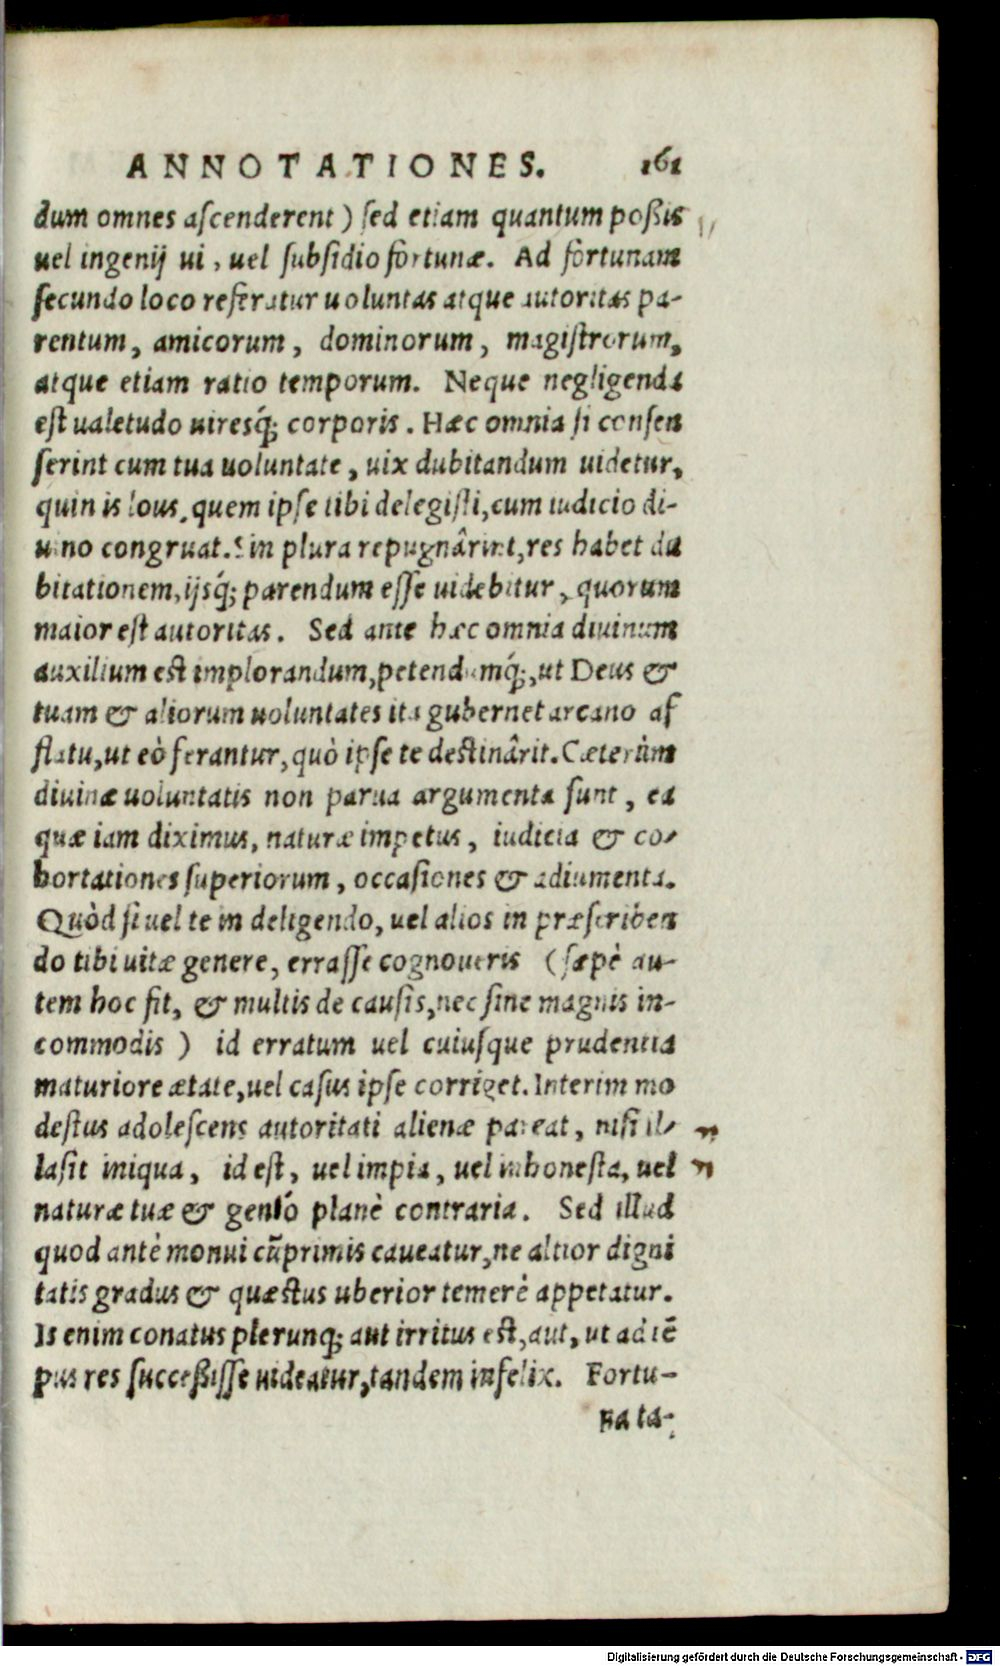 ANNOTATIONES. 161
dum omnes ascenderent) sed etiam quantum poßis
uel ingenij ui, uel subsidio fortunæ. Ad fortunam
secundo loco referatur uoluntas atque autoritas pa-
rentum, amicorum, dominorum, magistrorum,
atque etiam ratio temporum. Neque negligenda
est ualetudo uiresq́; corporis. Hæc omnia si consen
serint cum tua uoluntate, uix dubitandum uidetur,
quin is lous, quem ipse tibi delegisti, cum iudicio di-
uino congruat. Sin plura repugnârint, res habet du
bitationem, ijsq́; parendum esse uidebitur, quorum
maior est autoritas. Sed ante hæc omnia diuinum
auxilium est implorandum, petendumq́;, ut Deus &
tuam & aliorum uoluntates ita gubernet arcano af
flatu, ut eò ferantur, quò ipse te destinârit. Cæterùm
diuinæ uoluntatis non parua argumenta sunt, ea
quæ iam diximus, naturæ impetus, iudicia & co-
hortationes superiorum, occasiones & adiumenta.
Quòd si uel te in deligendo, uel alios in præscriben
do tibi uitæ genere, errasse cognoueris (sæpè au-
tem hoc fit, & multis de causis, nec sine magnis in-
commodis) id erratum uel cuiusque prudentia
maturiore ætate, uel casus ipse corriget. Interim mo
destus adolescens autoritati alienæ pareat, nisi il-
la sit iniqua, id est, uel impia, uel inhonesta, uel
naturæ tuæ & genió planè contraria. Sed illud
quod antè monui cũprimis caueatur, ne altior digni
tatis gradus & quæstus uberior temerè appetatur.
Is enim conatus plerunq; aut irritus est, aut, ut ad tẽ
pus res succeßisse uideatur, tandem infelix. Fortu-
na ta-
Digitalisierung gefördert durch die Deutsche Forschungsgemeinschaft - DFG